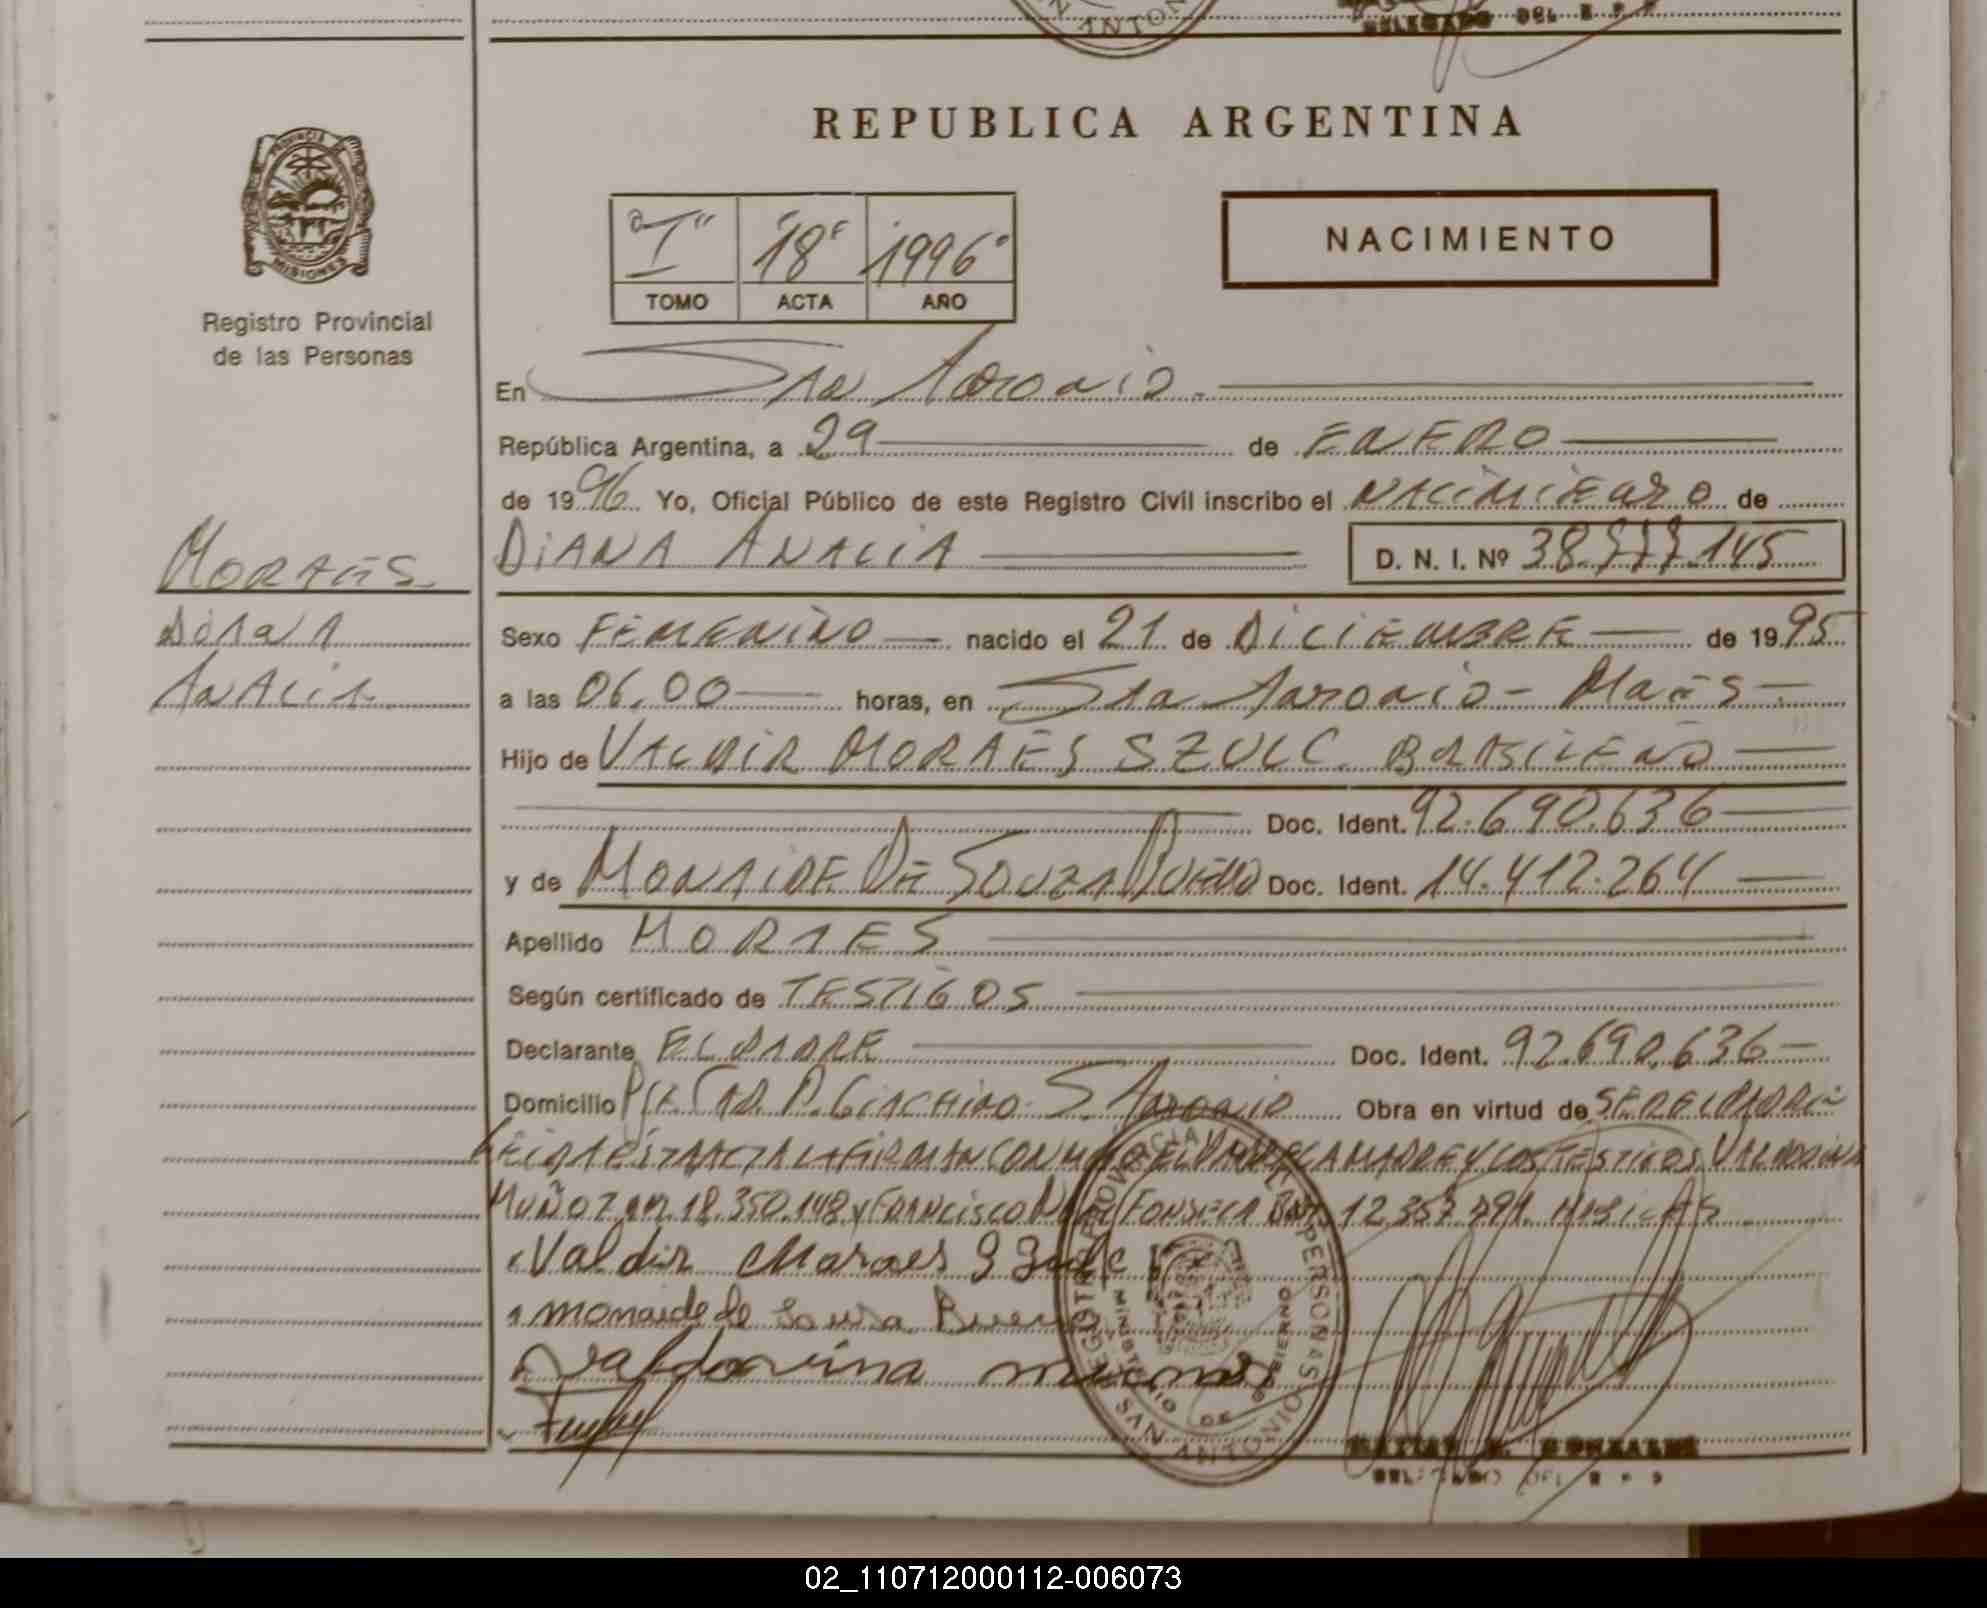 DELEGADO DEL R P P
ANTON
REPUBLICA ARGENTINA
PROVINCIA DE
MISIONES
Registro Provincial
de las Personas
"I" 18 1996
TOMO ACTA AÑO
NACIMIENTO
En San Antonio.
República Argentina, a 29 de ENERO
de 1996 Yo, Oficial Público de este Registro Civil inscribo el NACIMIENTO de
DIANA ANALIA D. N. I. Nº 38.777.145
MORAES
DIANA
ANALIA
Sexo FEMENINO nacido el 21 de DICIEMBRE de 1995
a las 06.00 horas, en San Antonio - Mnes
Hijo de VALDIR MORAES SZULC BRASILEÑO
Doc. Ident. 92.690.636
y de MONAIDE DE SOUZA BUENO Doc. Ident. 14.412.264
Apellido MORAES
Según certificado de TESTIGOS
Declarante EL PADRE Doc. Ident. 92.690.636
Domicilio P. GIACHINO S. Antonio Obra en virtud de SER EL PADRE
LEIDA ESTA ACTA LA FIRMAN CON MIGO EL PADRE LA MADRE Y LOS TESTIGOS VALDORINA
MUÑOZ 18.350.148 y FRANCISCO FONSECA 12.357.791
Valdir Moraes Szulc
monaide de Souza Bueno
Valdorina munos
REGISTRO PROVINCIAL DE LAS PERSONAS
MINISTERIO DE GOBIERNO
SAN ANTONIO
GONZALEZ
DELEGADO DEL R P P
02_110712000112-006073